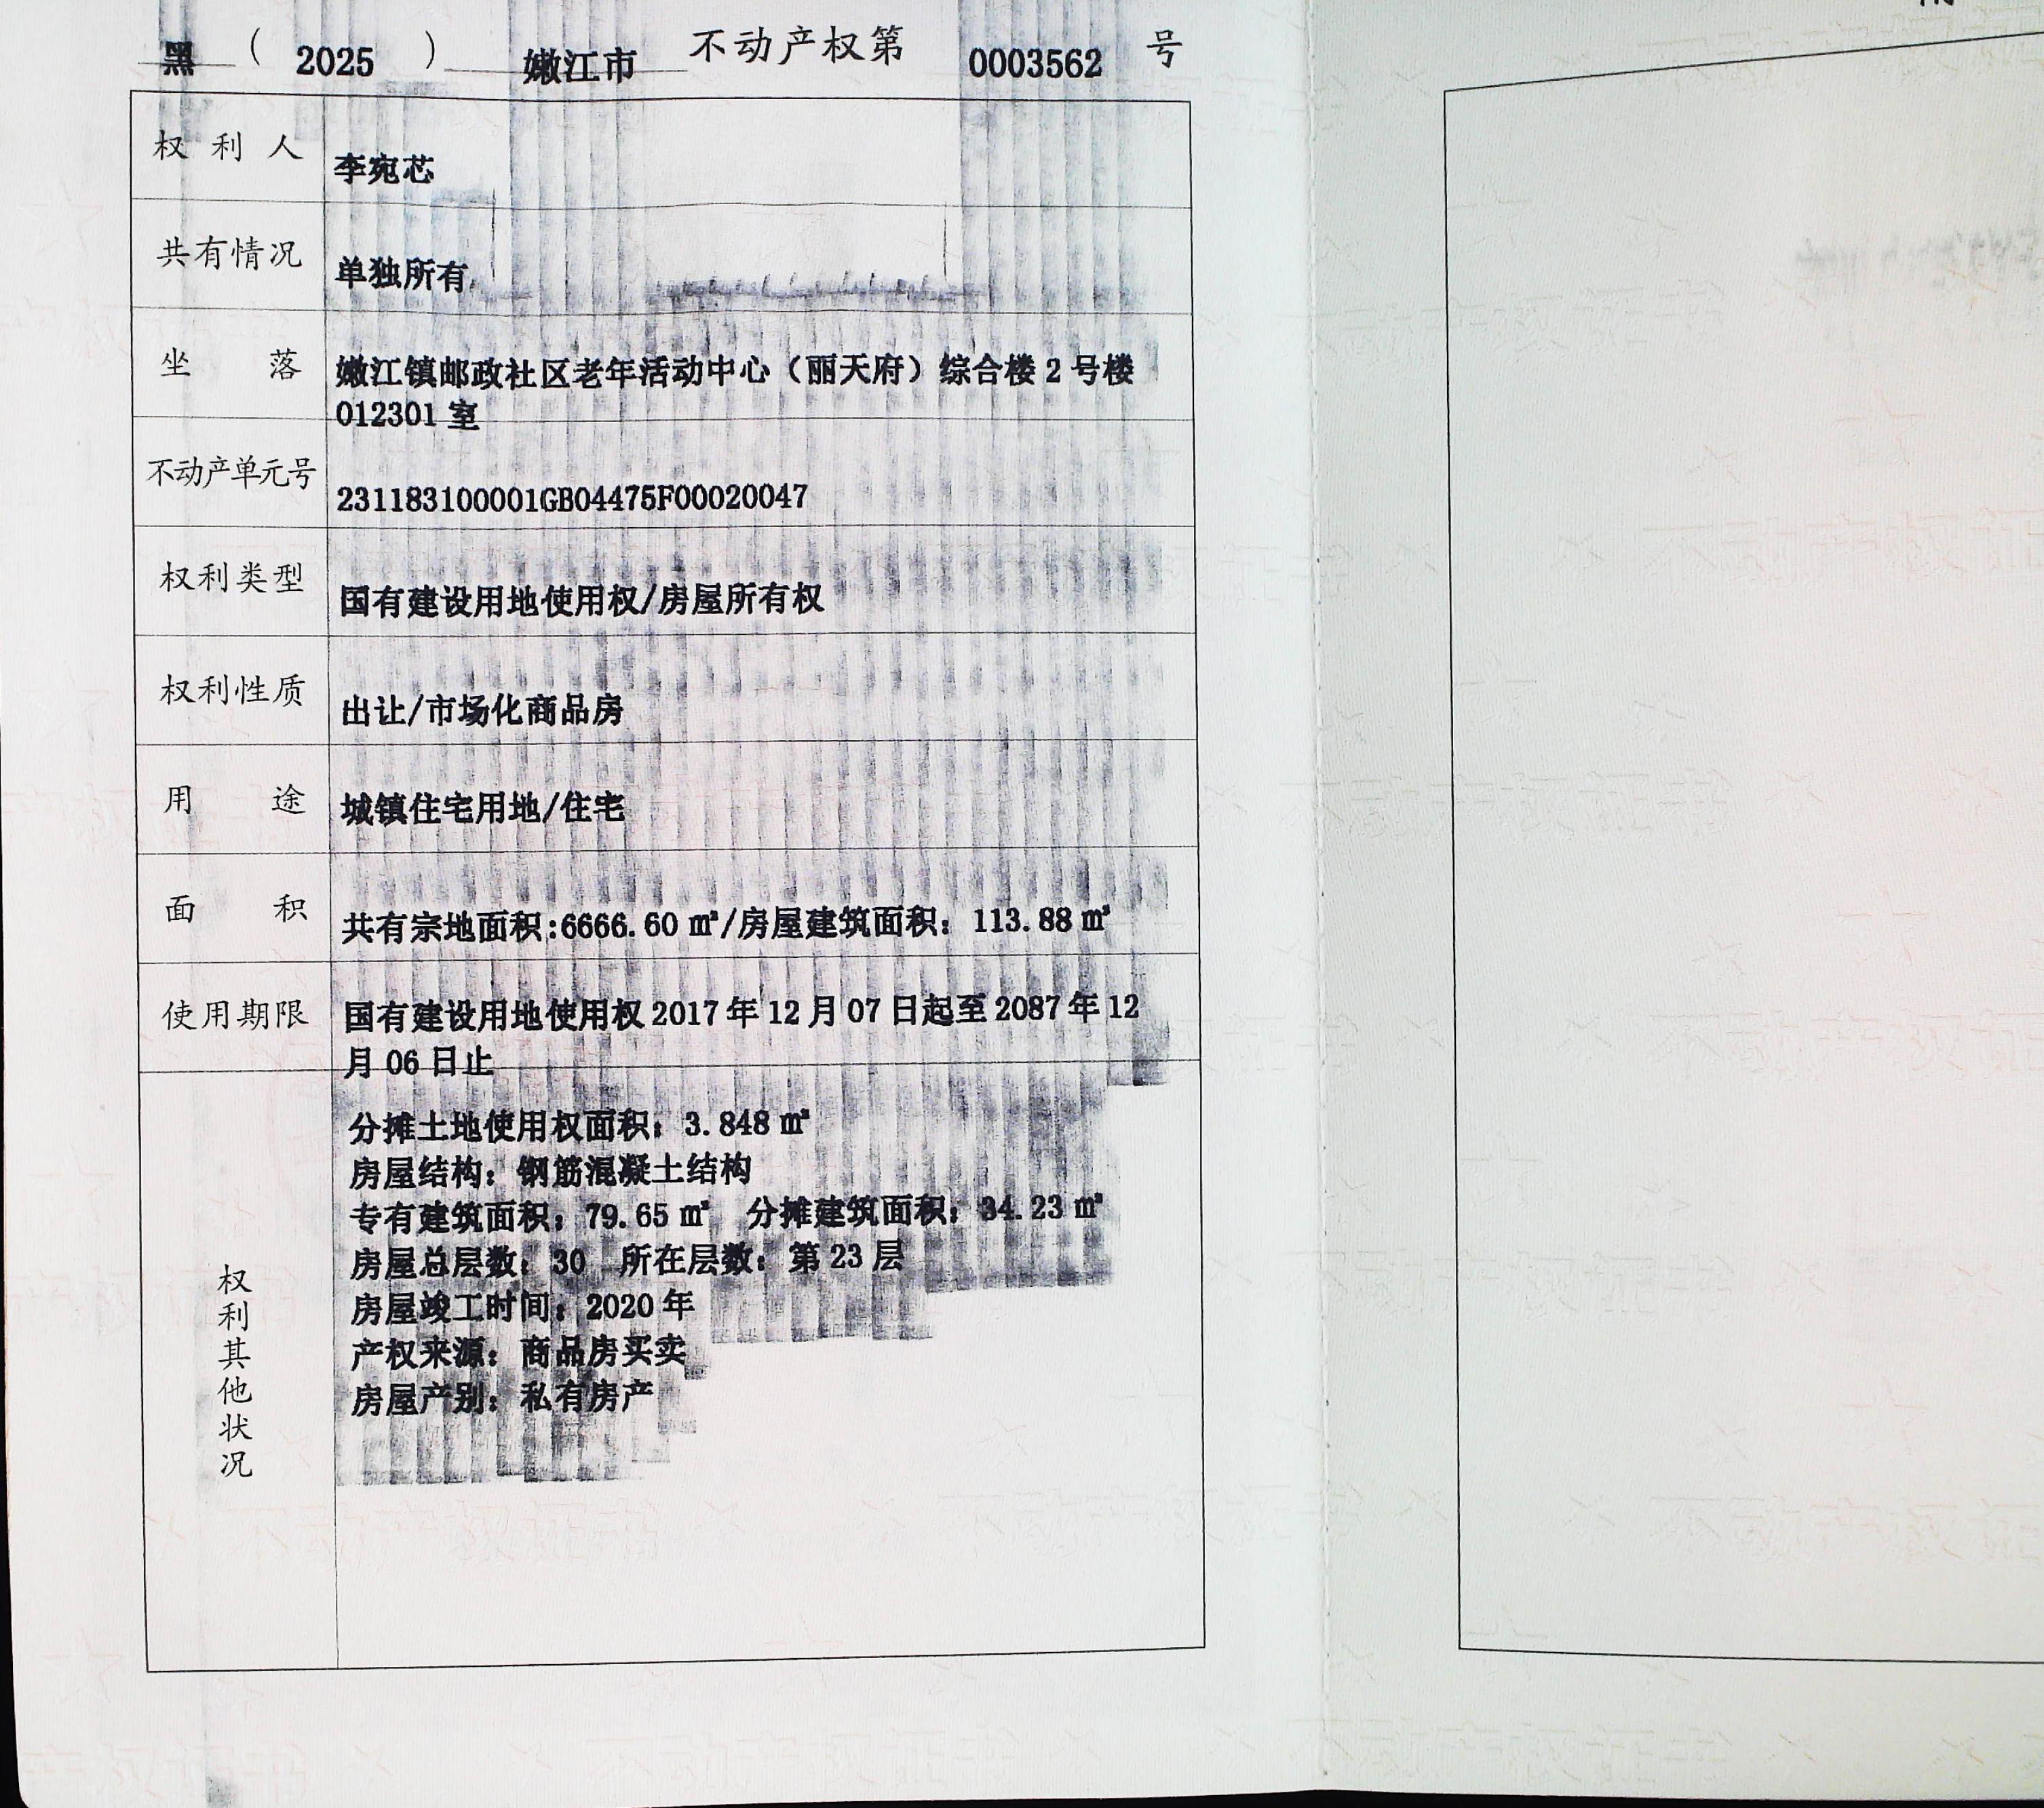 黑（2025）嫩江市不动产权第0003562号
权利人 李宛芯
共有情况 单独所有
坐落 嫩江镇邮政社区老年活动中心（丽天府）综合楼2号楼
012301室
不动产单元号 231183100001GB04475F00020047
权利类型 国有建设用地使用权/房屋所有权
权利性质 出让/市场化商品房
用途 城镇住宅用地/住宅
面积 共有宗地面积:6666.60㎡/房屋建筑面积：113.88㎡
使用期限 国有建设用地使用权2017年12月07日起至2087年12
月06日止
权利其他状况
分摊土地使用权面积：3.848㎡
房屋结构：钢筋混凝土结构
专有建筑面积：79.65㎡ 分摊建筑面积：34.23㎡
房屋总层数：30 所在层数：第23层
房屋竣工时间：2020年
产权来源：商品房买卖
房屋产别：私有房产